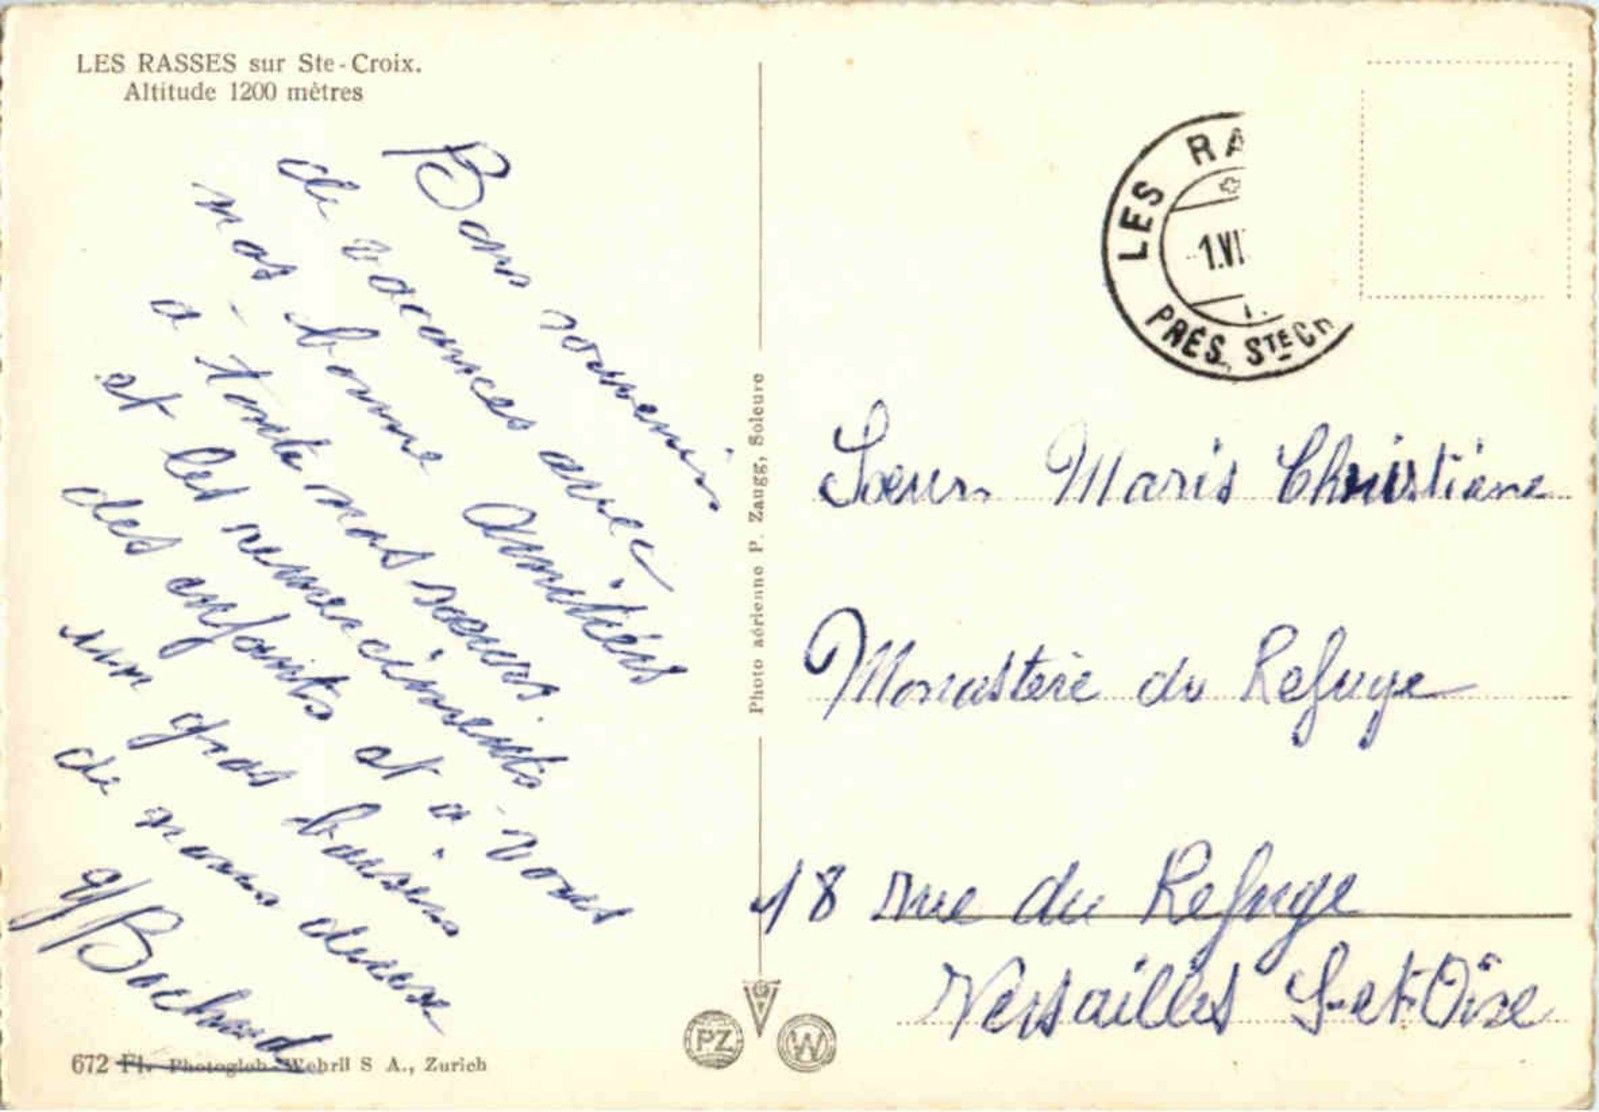 LES RASSES sur Ste-Croix.
Altitude 1200 mètres
Bons souvenirs
de vacances avec
nos bonne Amitiés
a toute nos soeurs.
et les remerciments
des enfants et a vous
un gros baisers
de nous deux
Bochard
672 Fl. Photoglob-Wehrli S A., Zurich
Photo aérienne P. Zaugg, Soleure
PZ
W
LES RA
1.VI
PRÉS. STE CR
Soeur Maris Christiane
Monastère du Refuge
18 rue du Refuge
Versailles S-et-Oise